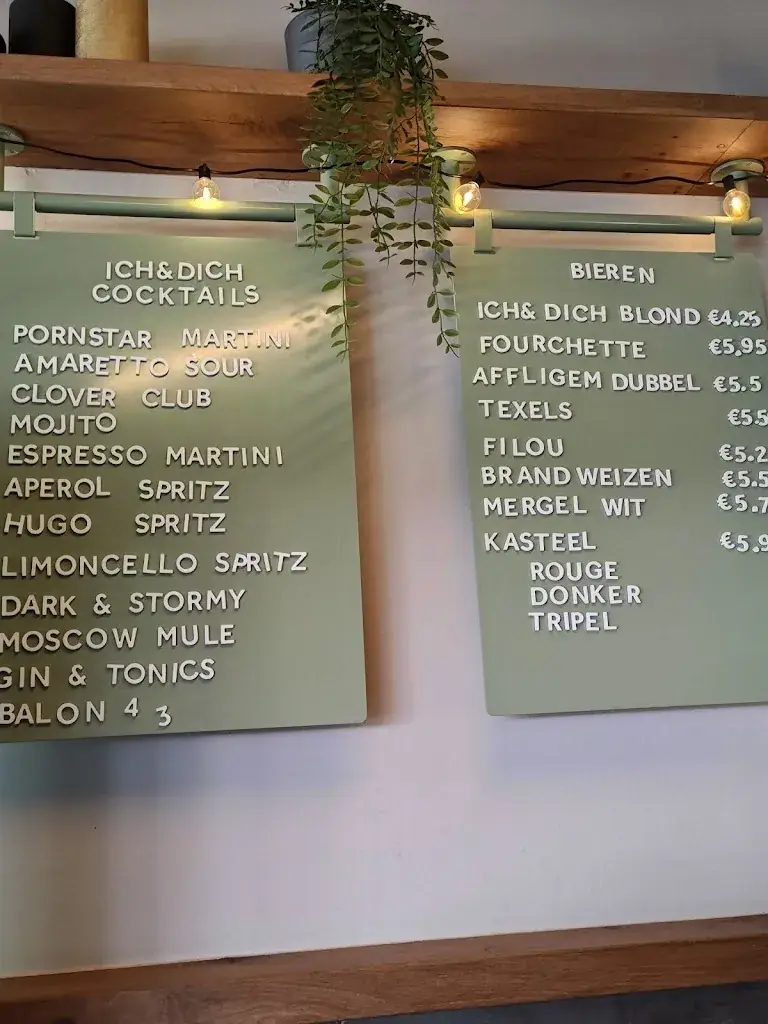 ICH&DICH
COCKTAILS
PORNSTAR MARTINI
AMARETTO SOUR
CLOVER CLUB
MOJITO
ESPRESSO MARTINI
APEROL SPRITZ
HUGO SPRITZ
LIMONCELLO SPRITZ
DARK & STORMY
MOSCOW MULE
GIN & TONICS
BALON 43
BIEREN
ICH& DICH BLOND €4.25
FOURCHETTE €5.95
AFFLIGEM DUBBEL €5.5
TEXELS €5.5
FILOU €5.2
BRAND WEIZEN €5.5
MERGEL WIT €5.7
KASTEEL €5.9
ROUGE
DONKER
TRIPEL